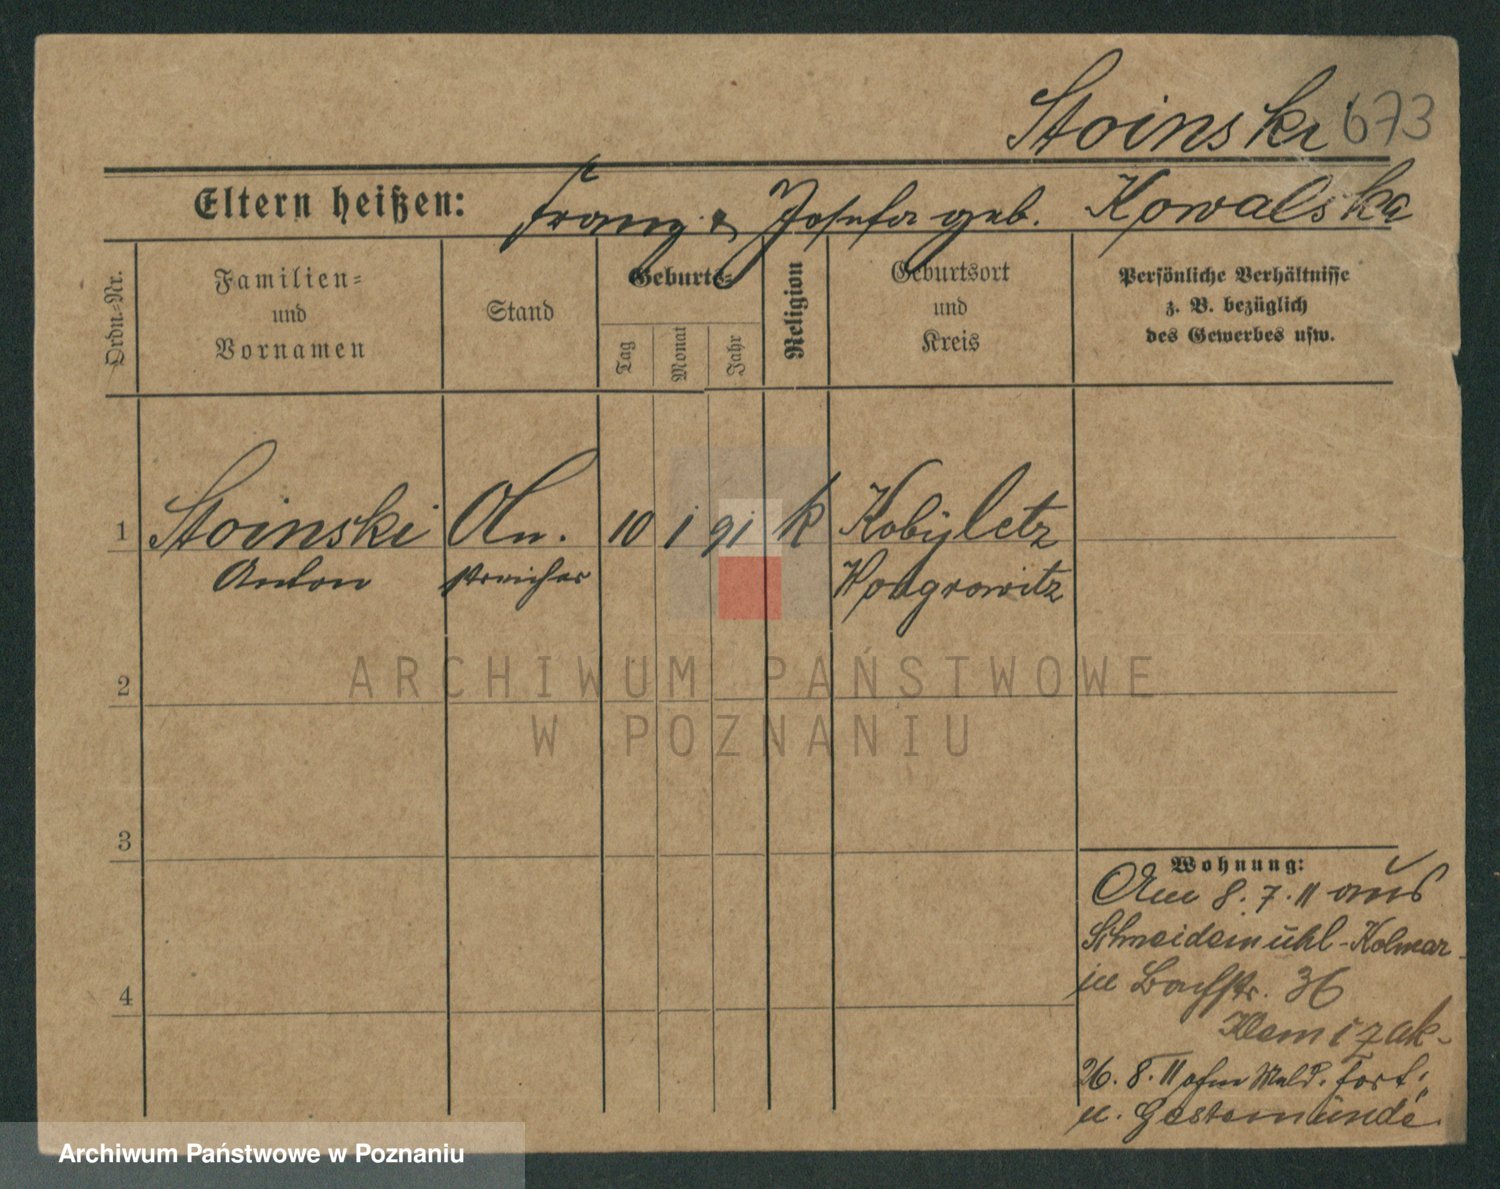 Stoinski 673
Eltern heißen: Franz & Josefa geb. Kowalska
Ordn.=Nr.
Familien=
und
Vornamen
Stand
Geburts=
Tag
Monat
Jahr
Religion
Geburtsort
und
Kreis
Persönliche Verhältnisse
z. B. bezüglich
des Gewerbes usw.
1 Stoinski An. 10 1 91 k Kobyletz
Anton streicher Wongrowitz
ARCHIWUM PAŃSTWOWE
W POZNANIU
2
3
4
Wohnung:
Am 8.7.11 aus
Schneidemühl-Kolmar
in Bachstr. 36
26.8.11 ohne Meld. fort
n. Geestemünde
Archiwum Państwowe w Poznaniu